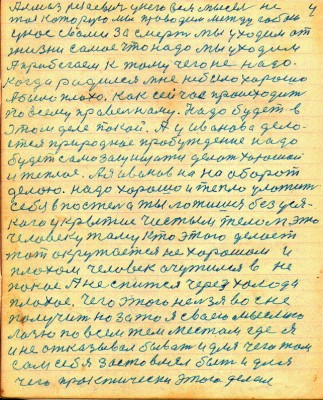 и у него вся мысль не у
тая которую мы проводим между собой
у нас с вами за смерть мы уходим от
жизни самое что надо мы уходим
А прибегаем к тому чего не надо.
Когда родился мне не было хорошо
А было плохо. Как сейчас происходит
по всему проведенному. Надо будет в
этом деле покой. А у иванова дела-
ется природное пробуждение надо
будет самозащищати делом хорошей
и теплое. А я иванов на на оборот
делаю. надо хорошо и тепло уложить
себя в постел а ты ложишь без уся-
кого укрытие чистым телом это
человеку тому кто этого делает
тот окружается не хорошом и
плохом человек очутился в не
покое А не спится через холода
плохое, чего этого нельзя во сне
получит но зато я своею мыслию
лажу по всем тем местам где я
и не отказывал быват и для чего там
сам себя заставлял быт и для
чего практически этого делал